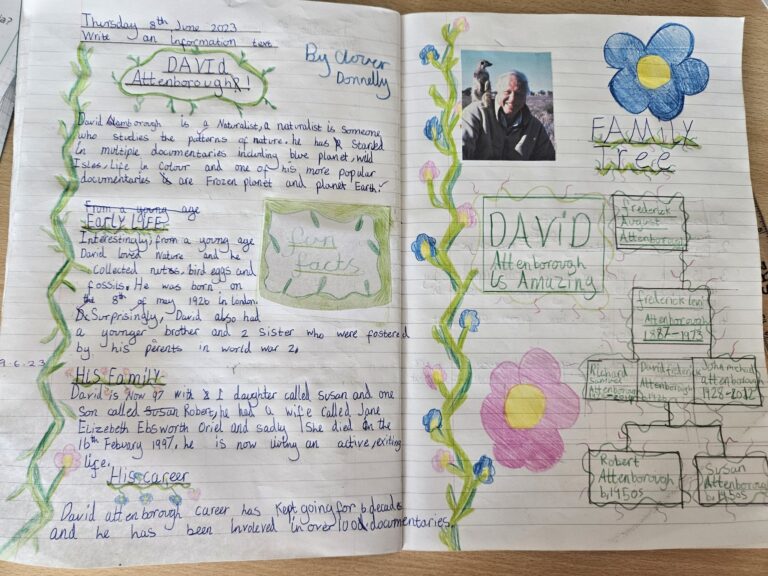 Thursday 8th June 2023
Write an information text
DAVID
Attenborough!
By Clover
Donnelly
David Attenborough is a Naturalist, a naturalist is someone
who studies the patterns of nature. he has Starled
in multiple documentaries including blue planet, wild
Isles, Life in Colour and one of his more popular
documentaries are Frozen planet and planet Earth.
From a young age
EARLY LIFE
Interestingly, from a young age
David loved Nature and he
collected nutss. bird eggs and
fossils. He was born on
the 8th of may 1926 in London.
Surprisingly, David also had
a younger brother and 2 sister who were fostered
by his perents in world war 2.
fun
facts
9.6.23
His Family
David is Now 97 with 1 daughter called susan and one
Son called Susan Robert, he had a wife called Jane
Elizebeth Ebsworth Oriel and sadly She died on the
16th Febuary 1997. he is now living an active, exiting
life.
His career
David attenborough career has kept going for 6 decades
and he has been involeved in over 100 documentaries.
FAMILY
Tree
DAVID
Attenborough
Is Amazing
frederick
August
Attenborough
frederick levi
Attenborough
1887-1973
Richard
Samuel
Attenborough
David frederick
Attenborough
John micheal
attenborough
1928-2012
Robert
Attenborough
b,1950s
Susan
Attenborough
b,1950s